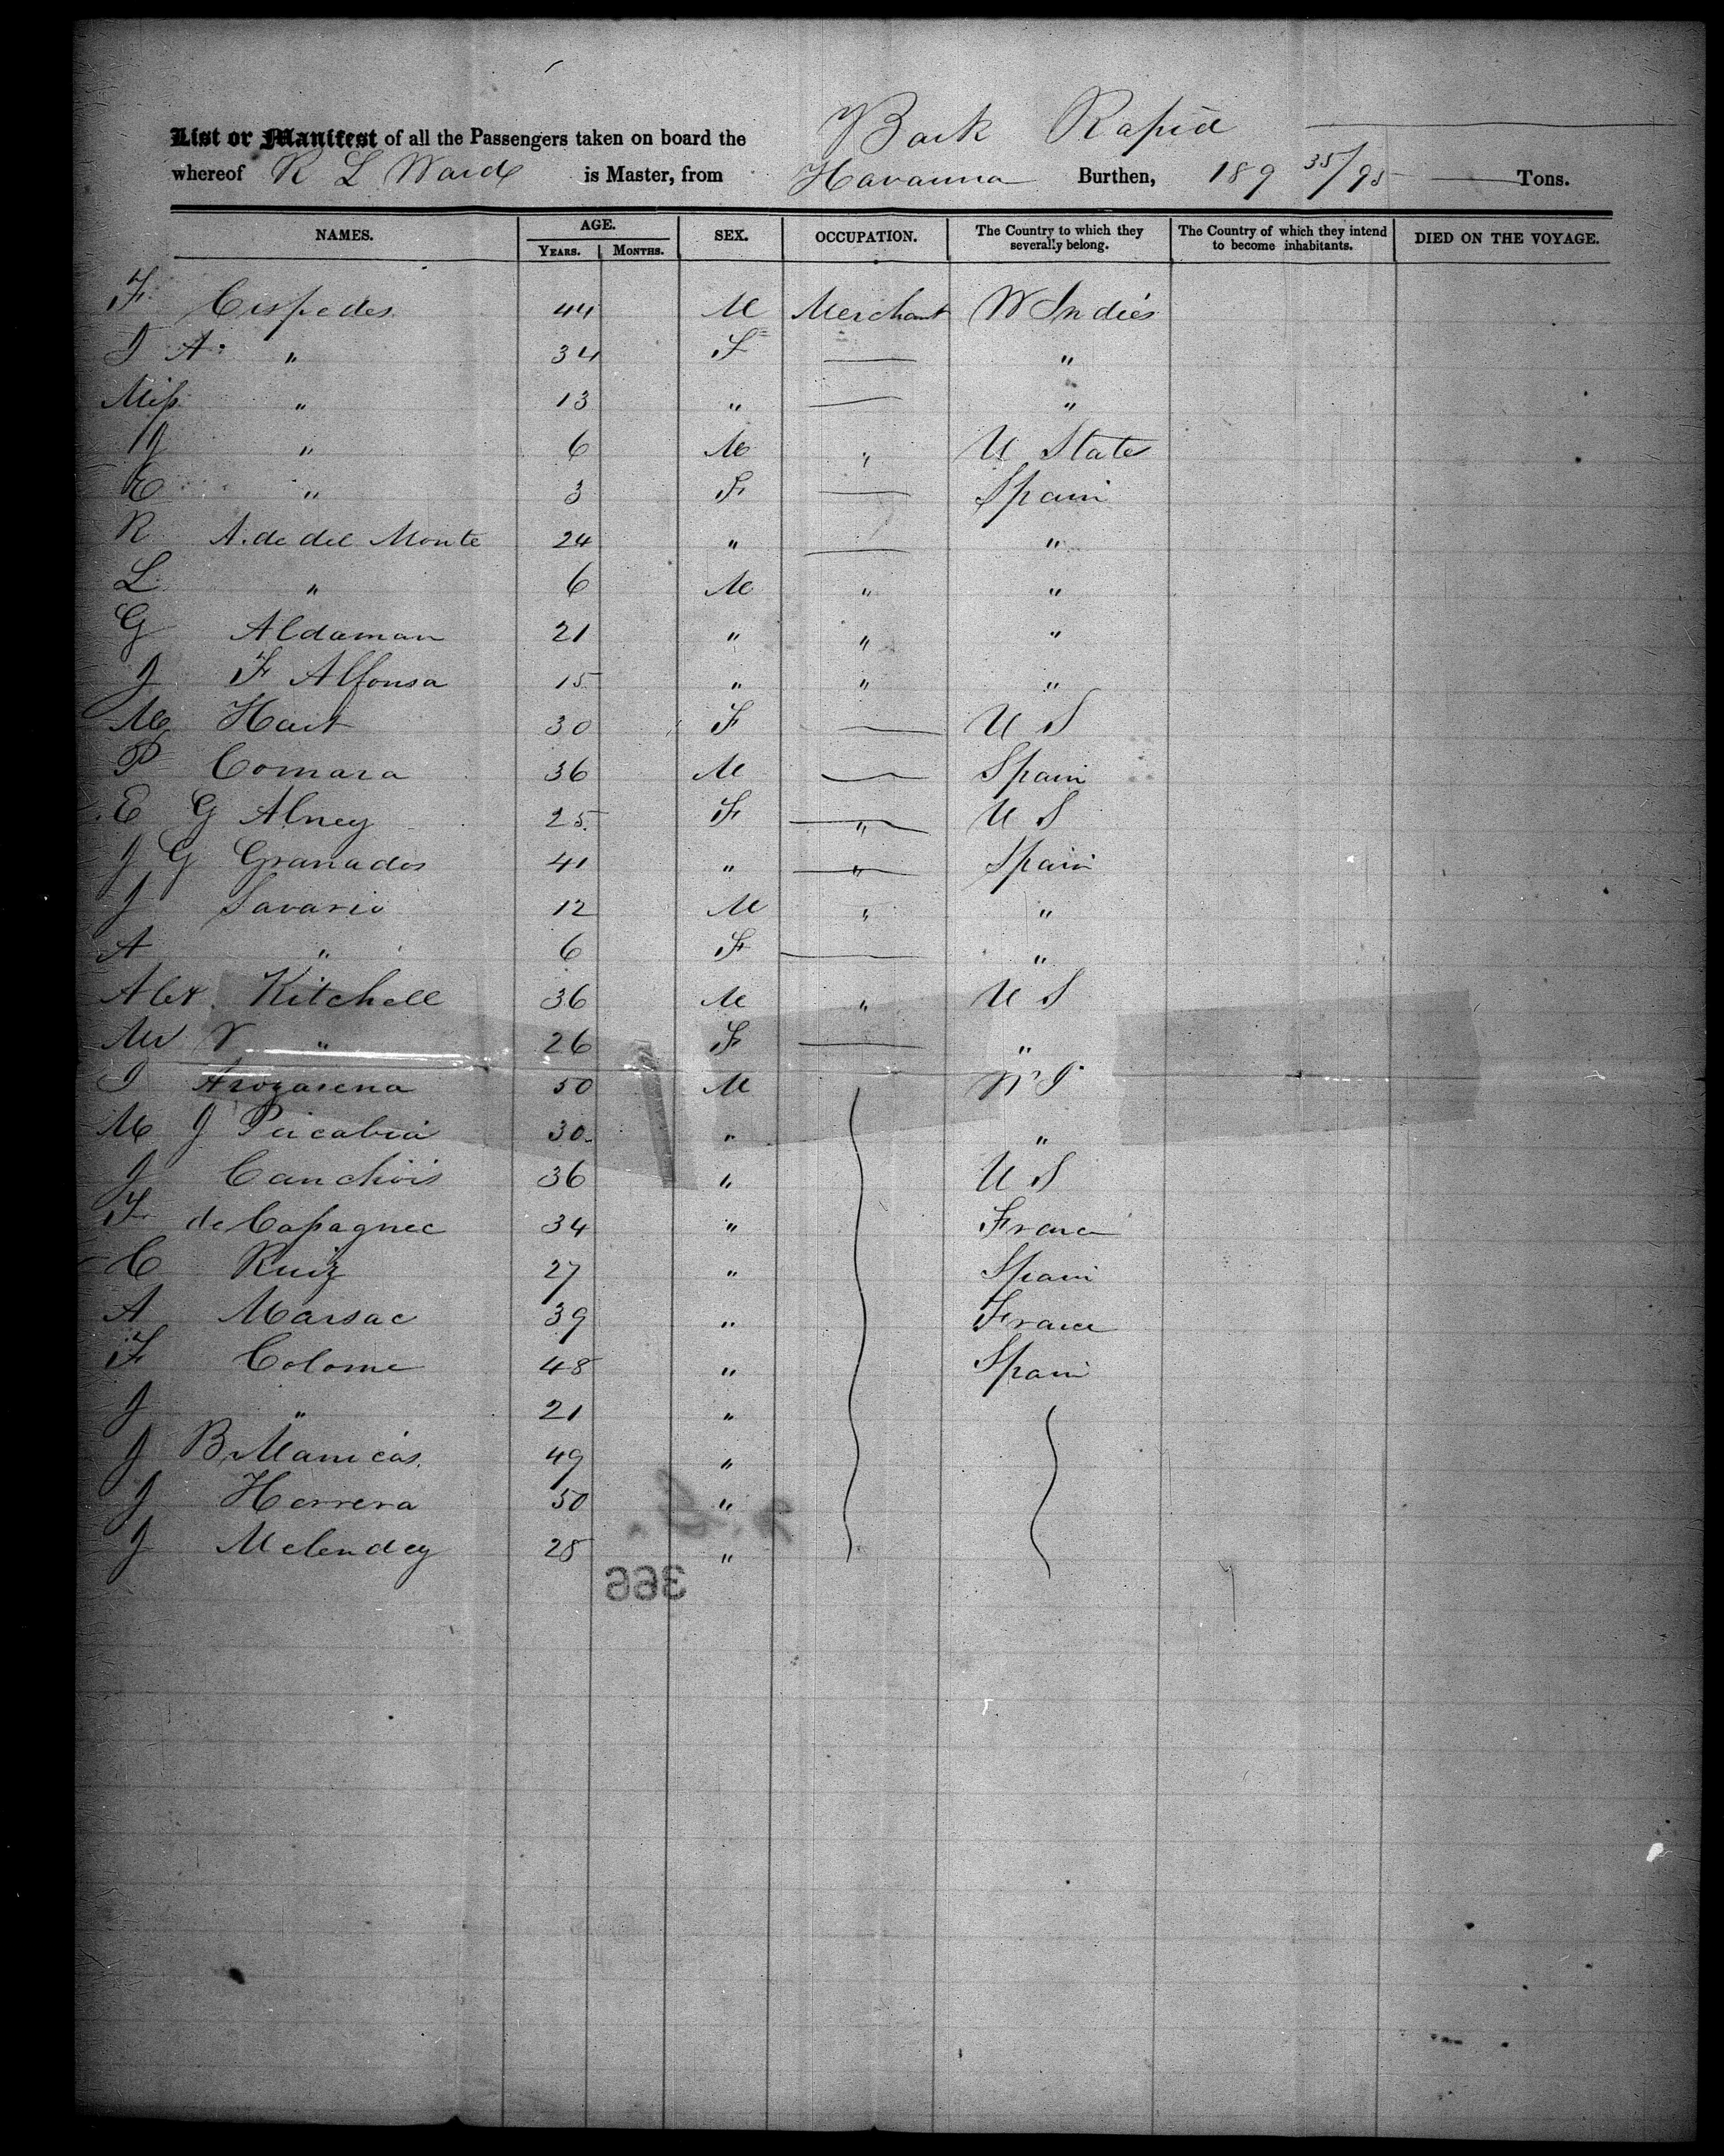 List or Manifest of all the Passengers taken on board the Bark Rapid
whereof R L Ward is Master, from Havanna Burthen, 189 35/95 Tons.
NAMES. AGE. SEX. OCCUPATION. The Country to which they severally belong. The Country of which they intend to become inhabitants. DIED ON THE VOYAGE.
YEARS. MONTHS.
F Cespedes 44 M Merchant W Indies
J A " 34 F "
Miss " 13 " "
J " 6 M " U States
E " 3 F Spain
R A. de del Monte 24 " "
L " 6 M " "
G Aldaman 21 " " "
J F Alfonsa 15 " " "
M Hart 30 F U S
P Comara 36 M Spain
E G Alney 25 F " U S
J G Granados 41 " " Spain
J Savario 12 M " "
A " 6 F "
Alex Kitchell 36 M " U S
" 26 F "
J Arozarena 50 M W I
M J 30 " "
J Canchois 36 " U S
F de Capagnec 34 " France
C Ruiz 27 " Spain
A Marsac 39 " France
F Colome 48 " Spain
J " 21 "
J B Manicas 49 "
J Herrera 50 "
J Melendey 28 "
366